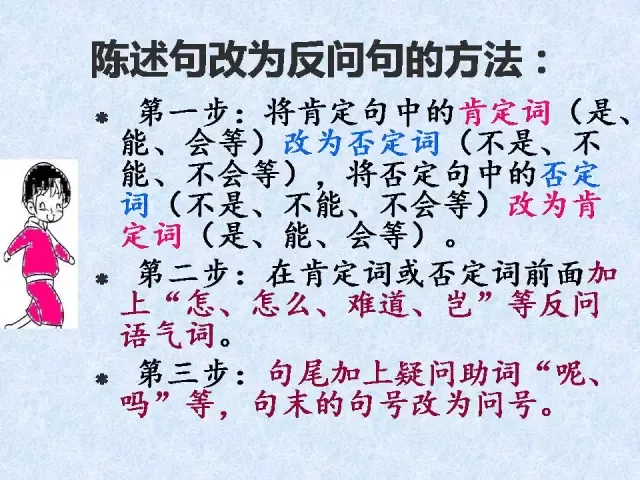 陈述句改为反问句的方法：
第一步：将肯定句中的肯定词（是、
能、会等）改为否定词（不是、不
能、不会等），将否定句中的否定
词（不是、不能、不会等）改为肯
定词（是、能、会等）。
第二步：在肯定词或否定词前面加
上“怎、怎么、难道、岂”等反问
语气词。
第三步：句尾加上疑问助词“呢、
吗”等，句末的句号改为问号。